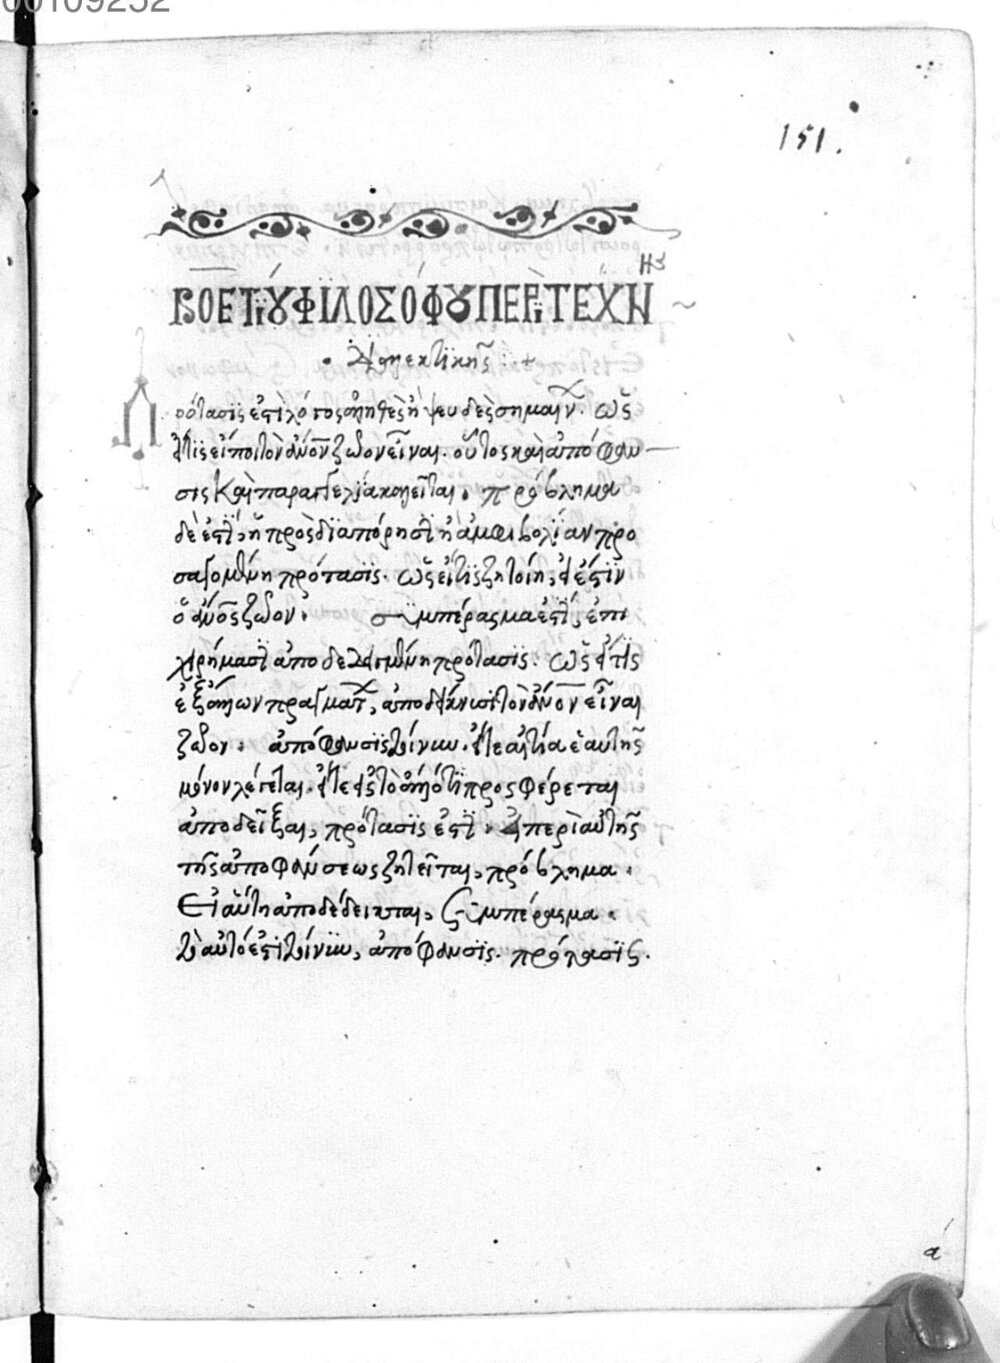 00109252
151.
ΒΟΕΤΙΟΥ ΦΙΛΟΣΟΦΟΥ ΠΕΡΙ ΤΕΧΝ
ης
διαλεκτικῆς
Πρότασίς ἐστι λόγος ἀληθὲς ἢ ψευδὲς σημαίνων. ὡς
εἴ τις εἴποι τὸν ἄνον ζῶον εἶναι. οὗτος καὶ ἀπόφαν
σις καὶ παραγγελία καλεῖται. πρόβλημα
δὲ ἐστὶν ἡ πρὸς διαπόρησιν ἢ ἀμφιβολίαν προ
σαγομένη πρότασις. ὡς εἴ τις ζητοίη, εἰ ἐστὶν
ὁ ἄνος ζῶον. συμπέρασμα ἐστὶν ἐπι
χειρήμασιν ἀποδεδειγμένη πρότασις. ὡς εἴ τις
ἐξ ἄλλων πραγμάτων, ἀποδείκνυσι τὸν ἄνον εἶναι
ζῶον. ἀπόφανσις τοίνυν. εἴτε αἰτία ἑαυτῆς
μόνον λέγεται. εἴτε εἰς τὸ ἄλλο ὅτι προσφέρεται
ἀποδεῖξαι, πρότασις ἐστὶν. εἰ περὶ αὐτῆς
τῆς ἀποφάνσεως ζητεῖται, πρόβλημα.
Εἰ αὕτη ἀποδέδεικται, συμπέρασμα.
τὸ αὐτὸ ἐστὶ τοίνυν, ἀπόφανσις. πρότασις.
α